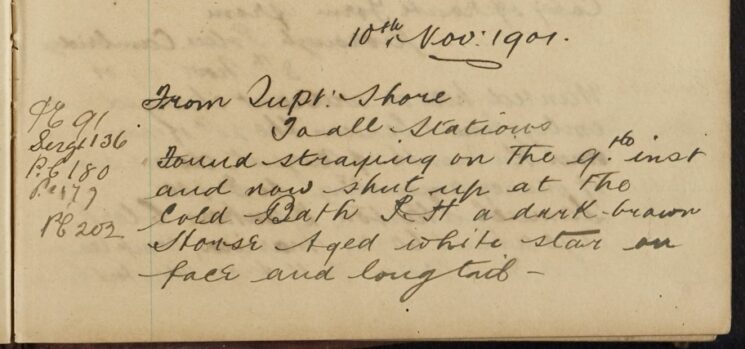 10th Nov: 1901.
From Supt: Shore
To all Stations
PC 91
Sergt 136
P.C 180
PC 179
PC 202
Found straying on the 9.th inst
and now shut up at the
Cold Bath P H a dark-brown
Horse Aged white star on
face and long tail -